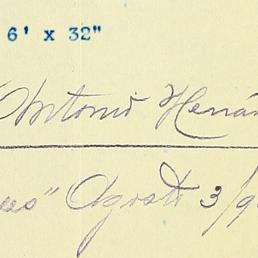 6' x 32"
Antonio Herná
es" Agosto 3/9